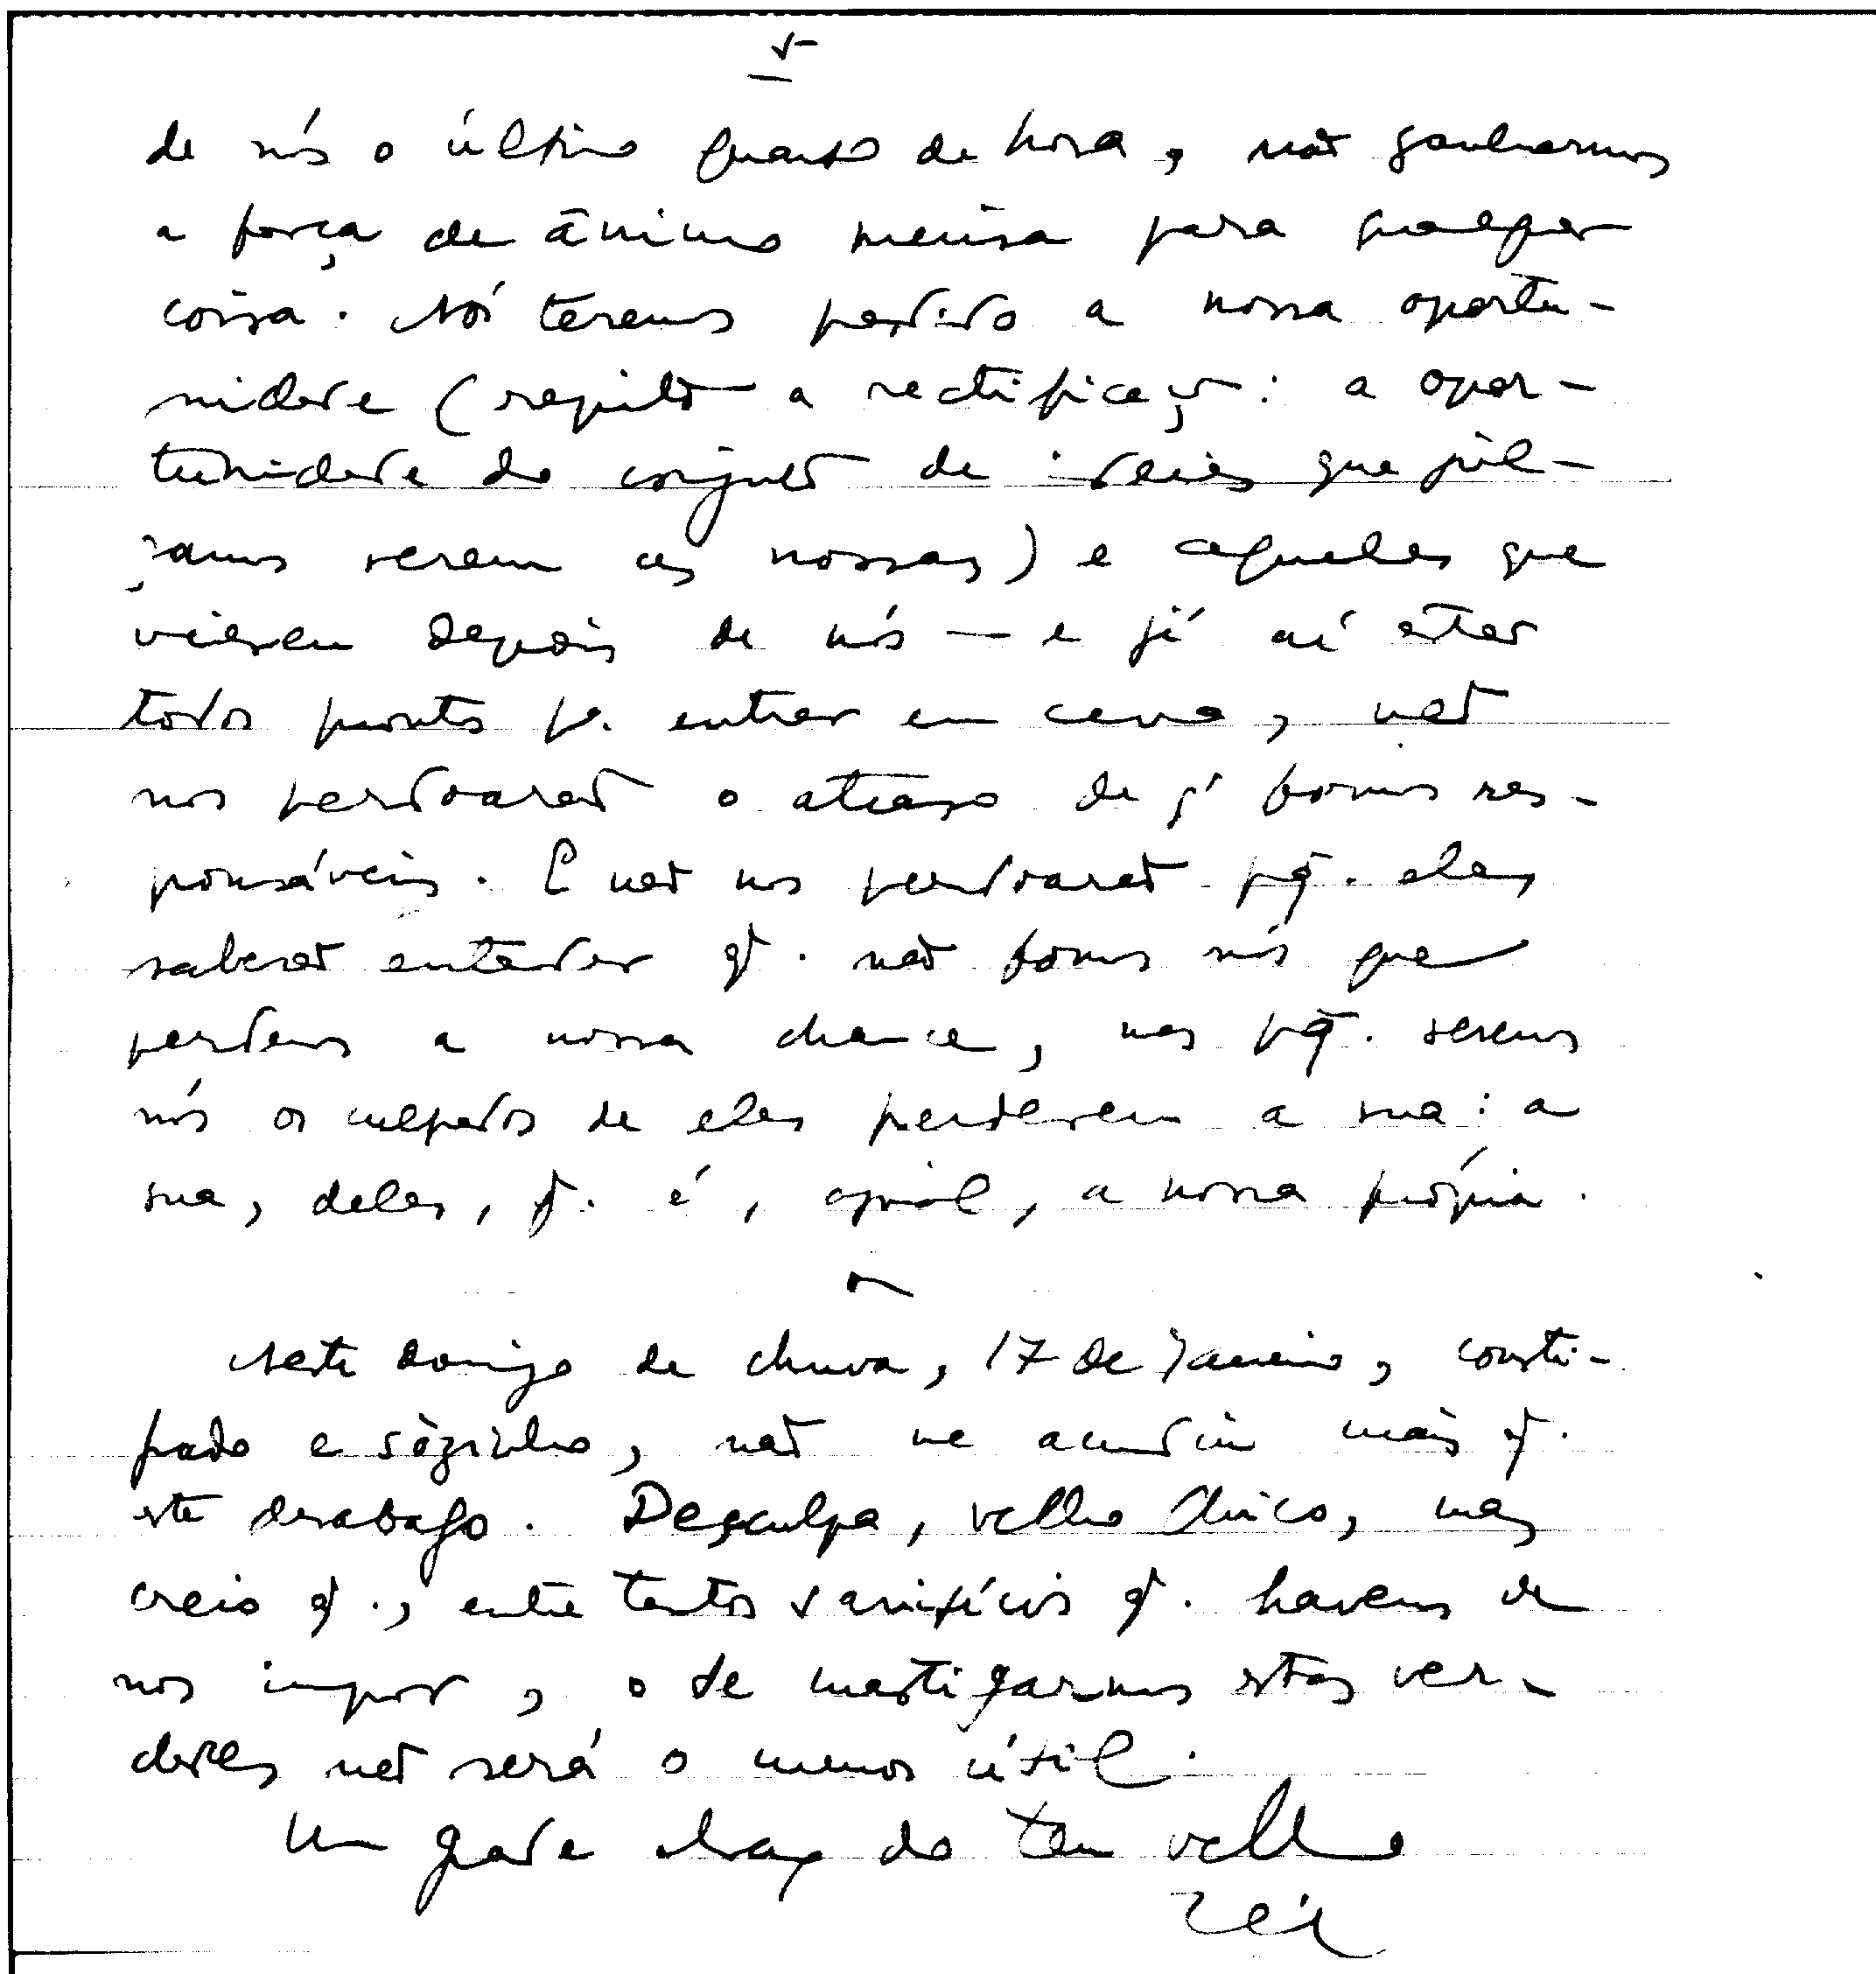 5
de nós o último quarto de hora, não ganharmos
a força de ânimo precisa para qualquer
coisa. Nós teremos perdido a nossa oportu-
nidade (repito a rectificação: a opor-
tunidade do conjunto de ideias que jul-
gamos serem as nossas) e aqueles que
vierem depois de nós — e já aí estão
todos prontos pa. entrar em cena, não
nos perdoarão o atraso de q' fomos res-
ponsáveis. E não nos perdoarão pq. eles
saberão entender q. não fomos nós que
perdemos a nossa chance, mas pq. seremos
nós os culpados de eles perderem a sua: a
sua, deles, q. é, afinal, a nossa própria.
Neste domingo de chuva, 17 de Janeiro, consti-
pado e sòzinho, não me acudiu mais q.
este desabafo. Desculpa, velho Chico, mas
creio q., entre tantos sacrifícios q. havemos de
nos impor, o de mastigarmos estas ver-
dades não será o menos útil.
Um grande abraço do teu velho
Zé